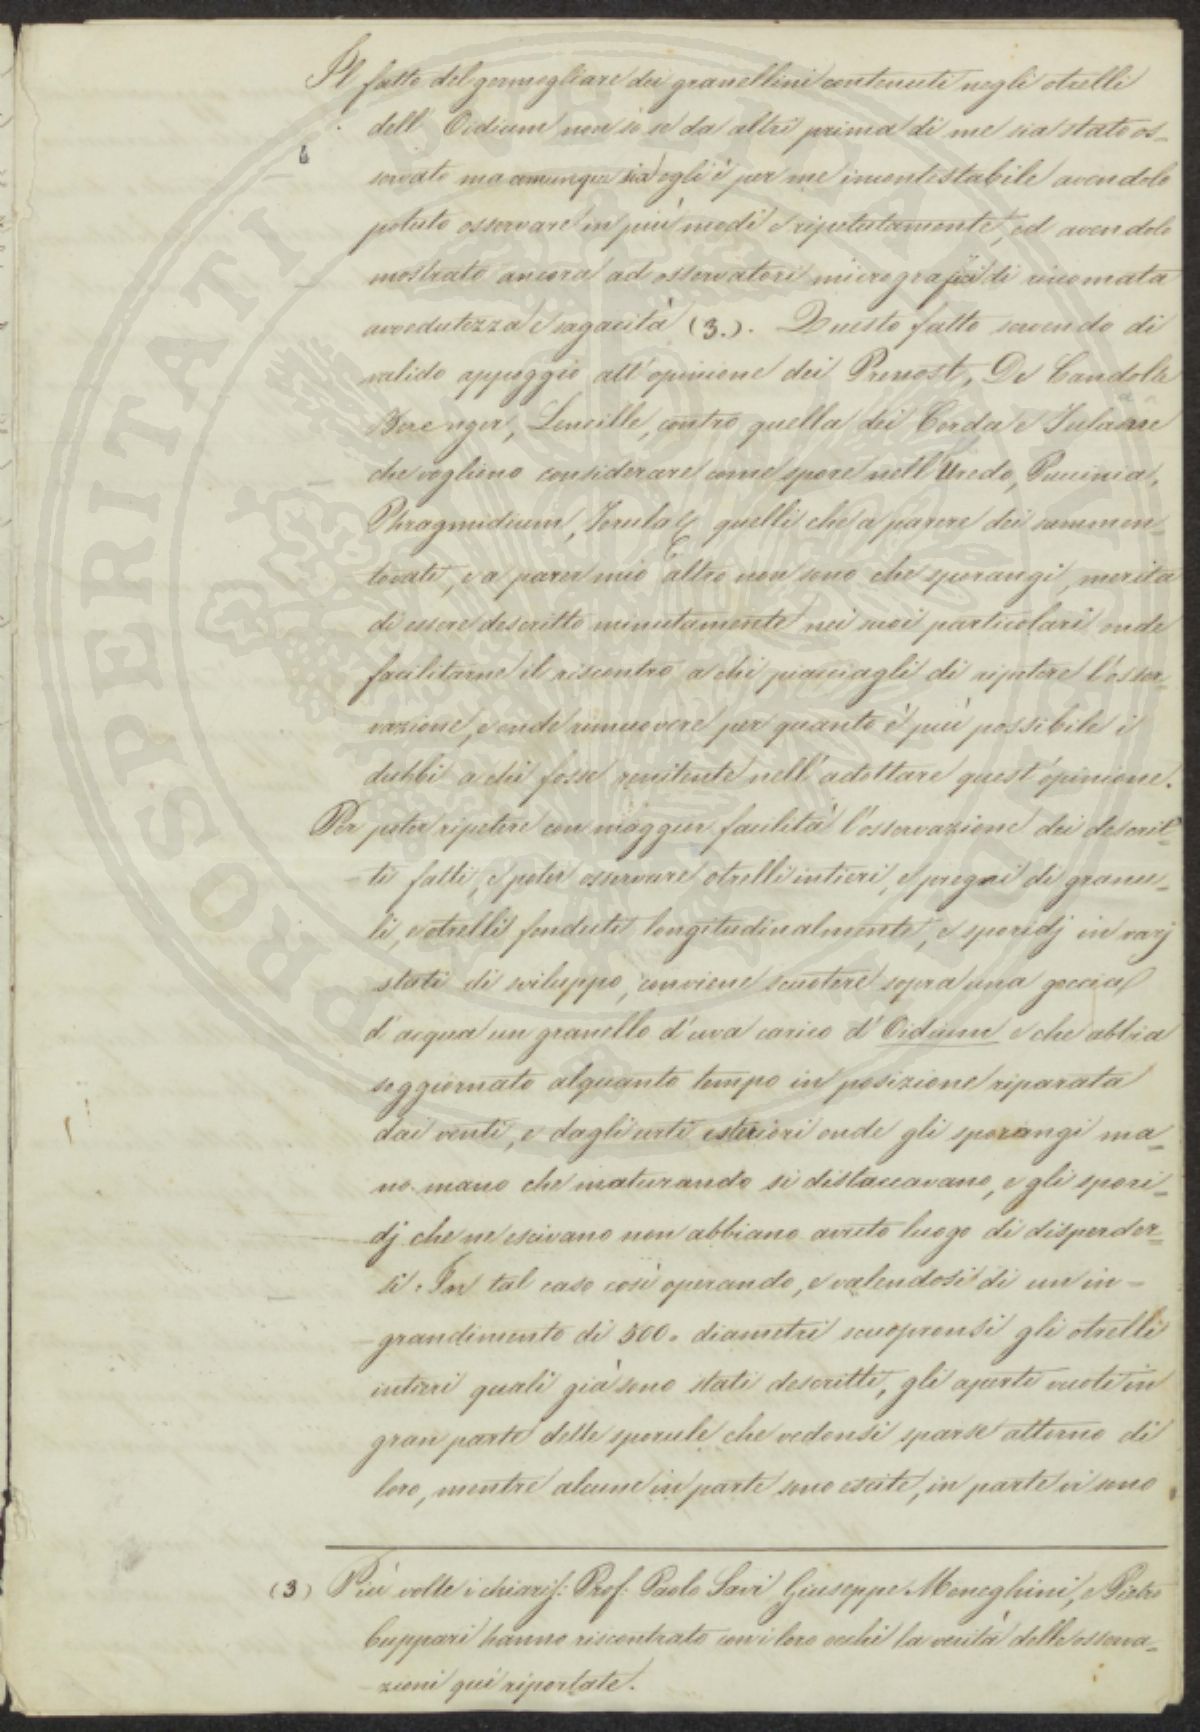 Il fatto del germogliare dei granellini contenuti negli otrelli
dell' Oidium non so se da altri prima di me sia stato os-
servato ma comunque sia egli è per me incontestabile avendolo
potuto osservare in più modi e ripetutamente, ed avendolo
mostrato ancora ad osservatori micrografici di rinomata
avvedutezza e sagacità (3.). Questo fatto servendo di
valido appoggio all' opinione dei Prevost, De Candolle
Berenger, Leveille, contro quella dei Corda e Tulasne
che vogliono considerare come spore nell' Uredo, Puccinia,
Phragmidium, Torula & quelli che a parere dei rammen-
tovati, e a parer mio altro non sono che sporangi, merita
di essere descritto minutamente nei suoi particolari onde
facilitarne il riscontro a chi piacciagli di ripetere l'osser-
vazione, e onde rimuovere per quanto è più possibile i
dubbi a chi fosse renitente nell' adottare quest' opinione.
Per poter ripetere con maggior facilità l'osservazione dei descrit-
ti fatti, e poter osservare otrelli intieri, e pregni di granel-
li, e otrelli fenduti longitudinalmente, e sporidj in varj
stati di sviluppo, conviene scuotere sopra una goccia
d' acqua un granello d' uva carico d' Oidium e che abbia
soggiornato alquanto tempo in posizione riparata
dai venti, e dagli urti esteriori onde gli sporangi ma-
no mano che maturando si distaccavano, e gli spori-
dj che ne escivano non abbiano avuto luogo di disperder-
si. In tal caso così operando, e valendosi di un in-
grandimento di 500. diametri scuopronsi gli otrelli
intieri quali già sono stati descritti, gli aperti vuoti in
gran parte delle sporule che vedonsi sparse attorno di
loro, mentre alcune in parte sono escite, in parte vi sono
(3) Più volte i chiariss: Prof. Paolo Savi Giuseppe Meneghini, e Pietro
Cuppari hanno riscontrato con i loro occhi la verità delle osserva-
zioni qui riportate.
PROSPERITATI PUBLICAE